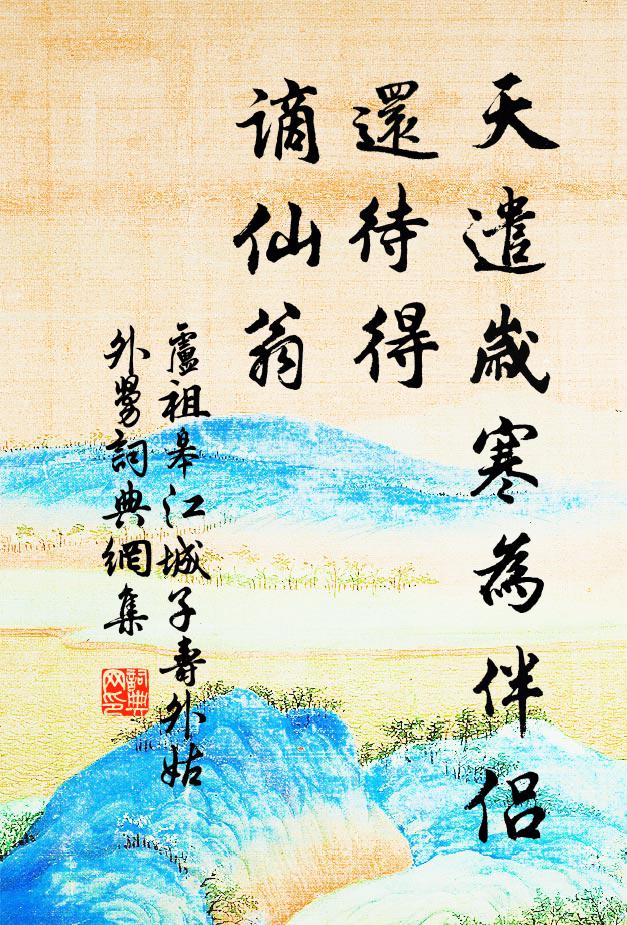 天遣歲寒為伴侶
還待得
謫仙翁
盧祖皋江城子壽外姑
外舅詞典網集
詞典
网印